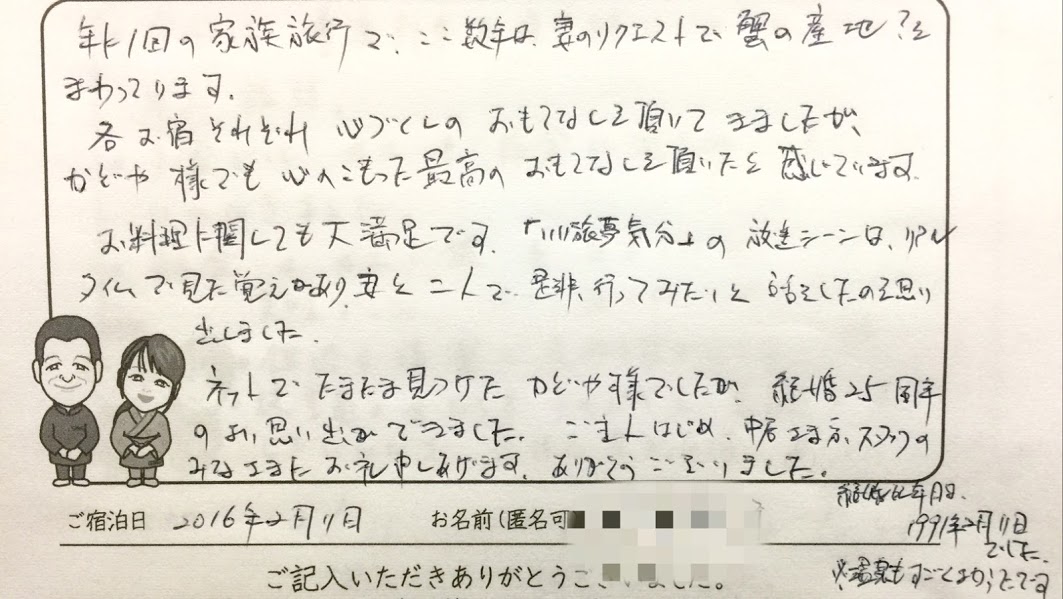 年に1回の家族旅行で、ここ数年は、妻のリクエストで蟹の産地?を
まわっております。
各お宿それぞれ心づくしのおもてなしを頂いてきましたが、
かどや様でも心のこもった最高のおもてなしを頂いたと感じています。
お料理に関しても大満足です。「いい旅夢気分」の放送シーンは、リアル
タイムで見た覚えがあり、妻と二人で是非、行ってみたいと話をしたのを思い
出しました。
ネットでたまたま見つけたかどや様でしたが、結婚25周年
のよい思い出ができました。ご主人はじめ、中居さま方、スタッフの
みなさまにお礼申しあげます。ありがとうございました。
結婚 年月日、
ご宿泊日 2016年2月11日 お名前(匿名可
1991年2月11日
でした。
ご記入いただきありがとうございました。
※温泉もすごくよかったです